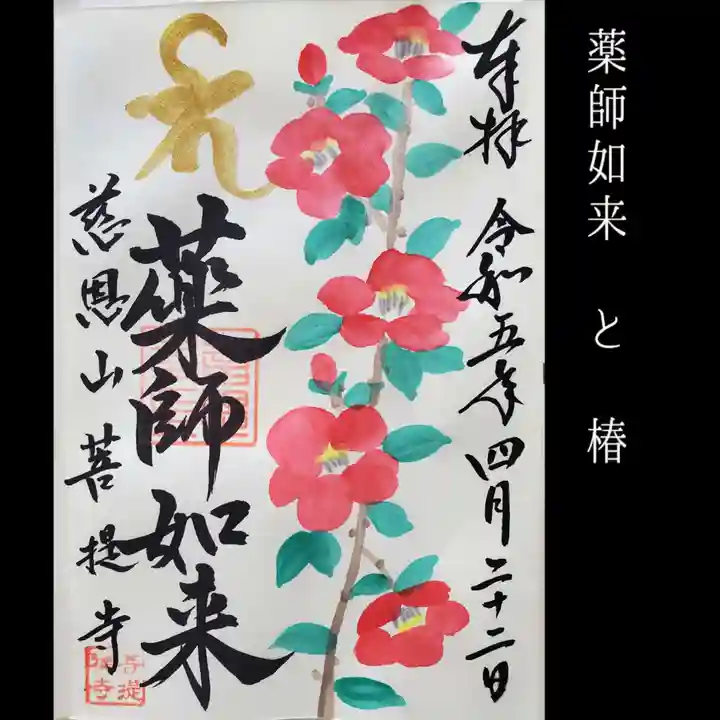 薬師如来 と 椿
奉拝 令和五年四月二十二日
薬師如来
慈恩山菩提寺
菩提
寺